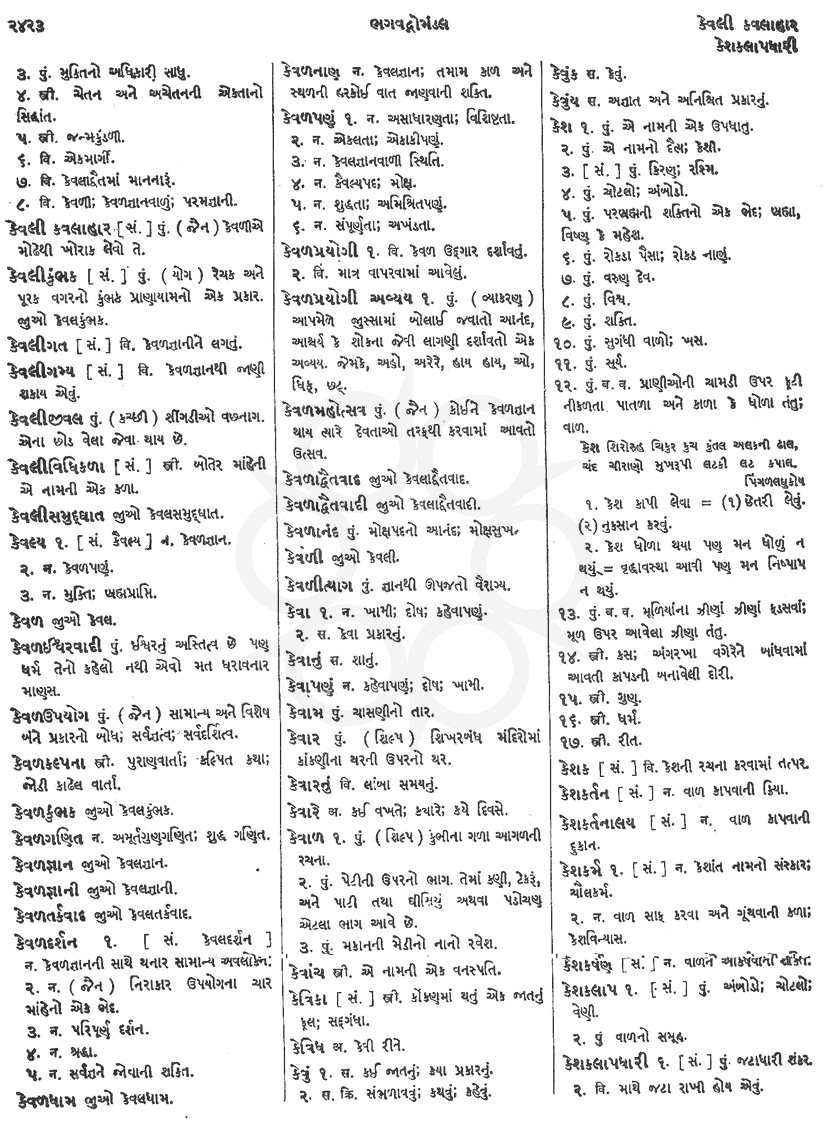 ૨૪૨૩
ભગવદ્ગોમંડલ
કેવલી કવલાહાર
કેશકલાપધારી
૩. પું. મુક્તિનો અધિકારી સાધુ.
૪. સ્ત્રી. ચેતન અને અચેતનની એકતાનો
સિદ્ધાંત.
૫. સ્ત્રી. જન્મકુંડળી.
૬. વિ. એકમાર્ગી.
૭. વિ. કેવલાદ્વૈતમાં માનનારૂં.
૮. વિ. કેવળી; કેવળજ્ઞાનવાળું; પરમજ્ઞાની.
કેવલી કવલાહાર [ સં. ] પું. ( જૈન ) કેવળીએ
મોઢેથી ખોરાક લેવો તે.
કેવલીકુંભક [ સં. ] પું. ( યોગ ) રેચક અને
પૂરક વગરનો કુંભક પ્રાણાયામનો એક પ્રકાર.
જુઓ કેવલકુંભક.
કેવલીગત [ સં. ] વિ. કેવળજ્ઞાનીને લગતું.
કેવલીગમ્ય [ સં. ] વિ. કેવળજ્ઞાનથી જાણી
શકાય એવું.
કેવલીજીવલ પું. ( કચ્છી ) શીંગડીઓ વછનાગ.
એના છોડ વેલા જેવા થાય છે.
કેવલીવિધિકળા [ સં. ] સ્ત્રી. બોતેર માંહેની
એ નામની એક કળા.
કેવલીસમુદ્ઘાત જુઓ કેવલસમુદ્ઘાત.
કેવલ્ય ૧. [ સં. કૈવલ્ય ] ન. કેવળજ્ઞાન.
૨. ન. કેવળપણું.
૩. ન. મુક્તિ; બ્રહ્મપ્રાપ્તિ.
કેવળ જુઓ કેવલ.
કેવળઈશ્વિરવાદી પું. ઈશ્વરનું અસ્તિત્વ છે પણ
ધર્મ તેનો કહેલો નથી એવો મત ધરાવનાર
માણસ.
કેવળઉપયોગ પું. ( જૈન ) સામાન્ય અને વિશેષ
બંને પ્રકારનો બોધ; સર્વજ્ઞત્વ; સર્વદર્શિત્વ.
કેવળકલ્પના સ્ત્રી. પુરાણવાર્તા; કલ્પિત કથા;
જોડી કાઢેલ વાર્તા.
કેવળકુંભક જુઓ કેવલકુંભક.
કેવળગણિત ન. અમૂર્તગુણગણિત; શુદ્ધ ગણિત.
કેવળજ્ઞાન જુઓ કેવલજ્ઞાન.
કેવળજ્ઞાની જુઓ કેવલજ્ઞાની.
કેવળતર્કવાદ જુઓ કેવલતર્કવાદ.
કેવળદર્શન ૧. [ સં. કેવલદર્શન ]
ન. કેવળજ્ઞાનની સાથે થનાર સામાન્ય અવલોકન;
૨. ન. ( જૈન ) નિરાકાર ઉપયોગના ચાર
માંહેનો એક ભેદ.
૩. ન. પરિપૂર્ણ દર્શન.
૪. ન. શ્રદ્ધા.
૫. ન. સર્વજ્ઞને જોવાની શક્તિ.
કેવળધામ જુઓ કેવલધામ.
કેવળનાણ ન. કેવલજ્ઞાન; તમામ કાળ અને
સ્થળની હરકોઈ વાત જાણવાની શક્તિ.
કેવળપણું ૧. ન. અસાધારણતા; વિશિષ્ટતા.
૨. ન. એકલતા; એકાકીપણું.
૩. ન. કેવલજ્ઞાનવાળી સ્થિતિ.
૪. ન. કૈવલ્યપદ; મોક્ષ.
૫. ન. શુદ્ધતા; અમિશ્રિતપણું.
૬. ન. સંપૂર્ણતા; અખંડતા.
કેવળપ્રયોગી ૧. વિ. કેવળ ઉદ્ગાર દર્શાવતું.
૨. વિ. માત્ર વાપરવામાં આવેલું.
કેવળપ્રયોગી અવ્યય ૧. પું. ( વ્યાકરણ )
આપમેળે જુસ્સામાં બોલાઈ જવાતો આનંદ,
આશ્ચર્ય કે શોકના જેવી લાગણી દર્શાવતો એક
અવ્યય. જેમકે, અહો, અરેરે, હાય હાય, ઓ,
ધિક્, છટ્.
કેવળમહોત્સવ પું. ( જૈન ) કોઈને કેવળજ્ઞાન
થાય ત્યારે દેવતાઓ તરફથી કરવામાં આવતો
ઉત્સવ.
કેવળાદ્વૈતવાદ જુઓ કેવલાદ્વૈતવાદ.
કેવળાદ્વૈતવાદી જુઓ કેવલાદ્વૈતવાદી.
કેવળાનંદ પું. મોક્ષપદનો આનંદ; મોક્ષસુખ.
કેવળી જુઓ કેવલી.
કેવળીત્યાગ પું. જ્ઞાનથી ઊપજતો વૈરાગ્ય.
કેવા ૧. ન. ખામી; દોષ; કહેવાપણું.
૨. સ. કેવા પ્રકારનું.
કેવાનું સ. શાનું.
કેવાપણું ન. કહેવાપણું; દોષ; ખામી.
કેવામ પું. ચાસણીનો તાર.
કેવાર પું. ( શિલ્પ ) શિખરબંધ મંદિરોમાં
કાંકણીના થરની ઉપરનો થર.
કેવારનું વિ. લાંબા સમયનું.
કેવારે અ. કઈ વખતે; ક્યારે; કયે દિવસે.
કેવાળ ૧. પું. ( શિલ્પ ) કુંભીના ગળા આગળની
રચના.
૨. પું. પેટીની ઉપરનો ભાગ. તેમાં કણી, ટેકરૂં,
અને પાટી તથા ઘીસિયું અથવા પડોચણ
એટલા ભાગ આવે છે.
૩. પું. મકાનની મેડીનો નાનો રવેશ.
કેવાંચ સ્ત્રી. એ નામની એક વનસ્પતિ.
કેવિકા [ સં. ] સ્ત્રી. કોંકણમાં થતું એક જાતનું
ફૂલ; સદ્ગંધા.
કેવિધ અ. કેવી રીતે.
કેવું ૧. સ. કઈ જાતનું; કયા પ્રકારનું.
૨. સ. ક્રિ. સંભળાવવું; કથવું; કહેવું.
કેવુંક સ. કેવું.
કેવુંય સ. અજ્ઞાત અને અનિશ્ચિત પ્રકારનું.
કેશ ૧. પું. એ નામની એક ઉપધાતુ.
૨. પું. એ નામનો દૈત્ય; કેશી.
૩. [ સં. ] પું. કિરણ; રશ્મિ.
૪. પું. ચોટલો; અંબોડો.
૫. પું. પરબ્રહ્મની શક્તિનો એક ભેદ; બ્રહ્મા,
વિષ્ણુ કે મહેશ.
૬. પું. રોકડા પૈસા; રોકડ નાણું.
૭. પું. વરુણ દેવ.
૮. પું. વિશ્વ.
૯. પું. શક્તિ.
૧૦. પું. સુગંધી વાળો; ખસ.
૧૧. પું. સૂર્ય.
૧૨. પું. બ. વ. પ્રાણીઓની ચામડી ઉપર ફૂટી
નીકળતા પાતળા અને કાળા કે ધોળા તંતુ;
વાળ.
કેશ શિરોરુહ ચિકુર કુચ કુંતલ અલકની ઢાલ,
ચંદ ચીરાણો મુખરૂપી લટકી લટ કપાલ.
પિંગળલઘુકોષ
૧. કેશ કાપી લેવા = (૧) છેતરી લેવું.
(૨) નુકસાન કરવું.
૨. કેશ ધોળા થયા પણ મન ધોળું ન
થયું = વૃદ્ધાવસ્થા આવી પણ મન નિષ્પાપ
ન થયું.
૧૩. પું. બ. વ. મૂળિયાંના ઝીણાં ઝીણાં ફડસવાં;
મૂળ ઉપર આવેલા ઝીણા તંતુ.
૧૪. સ્ત્રી. કસ; અંગરખા વગેરેને બાંધવામાં
આવતી કાપડની બનાવેલી દોરી.
૧૫. સ્ત્રી. ગુણ.
૧૬. સ્ત્રી. ધર્મ.
૧૭. સ્ત્રી. રીત.
કેશક [ સં. ] વિ. કેશની રચના કરવામાં તત્પર.
કેશકર્તન [ સં. ] ન. વાળ કાપવાની ક્રિયા.
કેશકર્તનાલય [ સં. ] ન. વાળ કાપવાની
દુકાન.
કેશકર્મ ૧. [ સં. ] ન. કેશાંત નામનો સંસ્કાર;
ચૌલકર્મ.
૨. ન. વાળ સાફ કરવા અને ગૂંથવાની કળા;
કેશવિન્યાસ.
કેશકર્ષણ [ સં. ] ન. વાળને આકર્ષવાની શક્તિ.
કેશકલાપ ૧. [ સં. ] પું. અંબોડો; ચોટલો;
વેણી.
૨. પું વાળનો સમૂહ.
કેશકલાપધારી ૧. [ સં. ] પું. જટાધારી શંકર.
૨. વિ. માથે જટા રાખી હોય એવું.